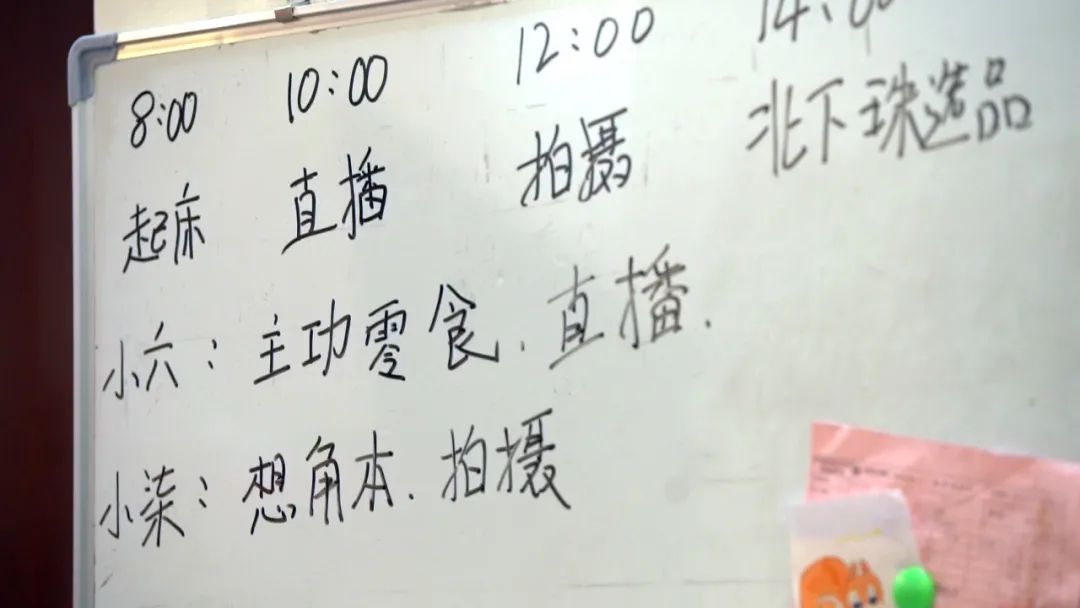 8:00 10:00 12:00 14:00
起床 直播 拍摄 北下珠选品
小六：主功零食.直播.
小柒：想角本.拍摄